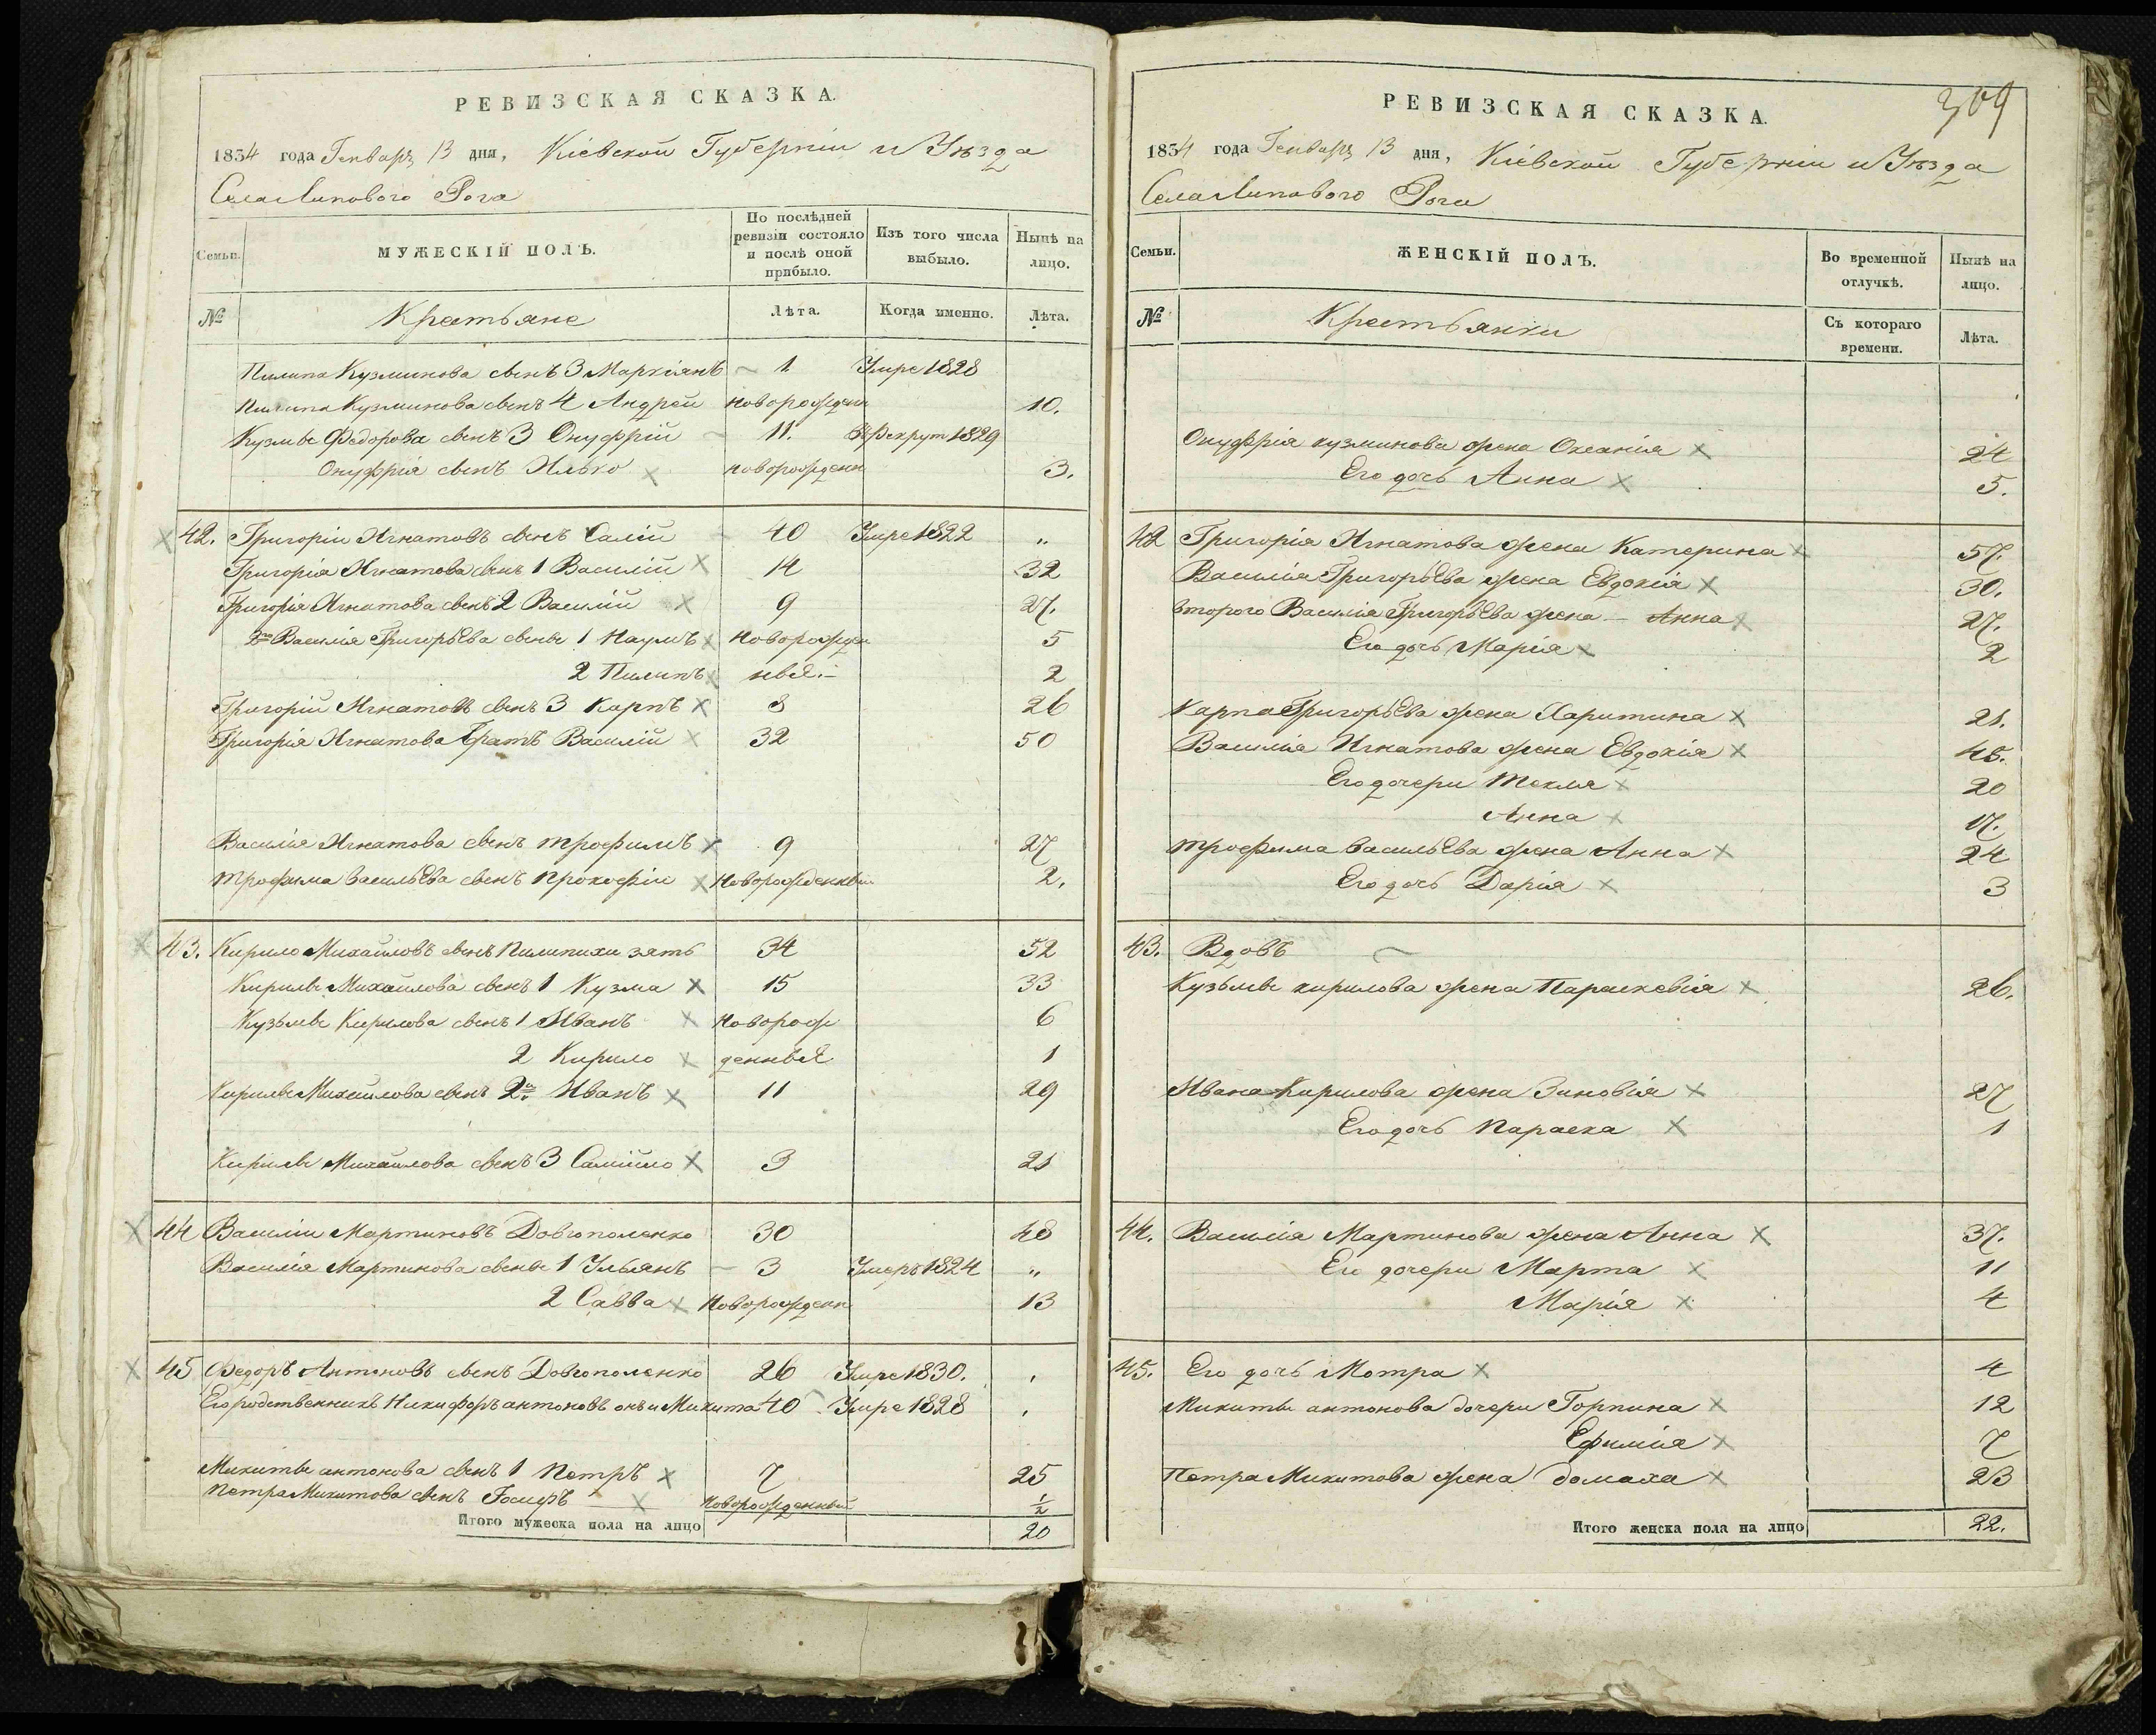 РЕВИЗСКАЯ СКАЗКА.
1834 года Генваря 13 дня, Кіевской Губерніи и Уѣзда
Села Липового Рога
Семьи.
МУЖЕСКІЙ ПОЛЪ.
По послѣдней ревизіи состояло и послѣ оной прибыло.
Изъ того числа выбыло.
Нынѣ на лицо.
№
Крестьяне
Лѣта.
Когда именно.
Лѣта.
Пилипа Кузминова сынъ 3 Маркіянъ 1. Умре 1828
Пилипа Кузминова сынъ 4 Андрей новорожден 10.
Кузмы Федорова сынъ 3 Онуфрій 11. Рекрут 1829
Онуфрія сынъ Илько новорожденн 3.
42. Григоріи Игнатовъ сынъ 40 Умре 1822 „
Григорія Игнатова сынъ 1 Василій 14 32
Григорія Игнатова сынъ 2 Василій 9 27.
2го Василія Григорьева сыны 1 Наумъ Новорожден 5
2 Пилипъ ныя 2
Григорій Игнатовъ сынъ 3 Карпъ 8 26
Григорія Игнатова братъ Василій 32 50
Василія Игнатова сынъ Трофимъ 9 27
Трофима Васильева сынъ Прокофіи Новорожденный 2.
43. Кирило Михайловъ сынъ Пилипихи зять 34 52
Кирилы Михайлова сынъ 1 Кузма 15 33
Кузьмы Кирилова сынъ 1 Иванъ Новорож 6
2 Кирило денныя 1
Кирилы Михайлова сынъ 2й Иванъ 11 29
Кирилы Михайлова сынъ 3 Самійло 3 21
44 Василіи Мартиновъ Довгополенко 30 48
Василія Мартинова сыны 1 Ульянъ 3 Умеръ 1824 „
2 Савва Новорожденн 13
45 Федоръ Антоновъ сынъ Довгополенко 26 Умре 1830.
Его родственникъ Никифоръ антоновъ онъ и Микита 40 Умре 1828
Микиты антонова сынъ 1 Петръ 7 25
Петра Микитова сынъ Іосифъ Новорожденный 1/2
Итого мужеска пола на лицо 20
309
РЕВИЗСКАЯ СКАЗКА.
1834 года Генваря 13 дня, Кіевской Губерніи и Уѣзда
Села Липового Рога
Семьи.
ЖЕНСКІЙ ПОЛЪ.
Во временной отлучкѣ.
Нынѣ на лицо.
№
Крестьянки
Съ котораго времени.
Лѣта.
Онуфрія кузминова жена Оксанія 24
Его дочь Анна 5.
42 Григорія Игнатова жена Катерина 57.
Василія Григорьева жена Евдокія 30.
второго Василія Григорьева жена Анна 27.
Его дочь Марія 2
Карпа Григорьева жена Харитина 21.
Василія Игнатова жена Евдокія 45.
Его дочери Текля 20
Анна 17.
Трофима Васильева жена Анна 24
Его дочь Дарія 3
43. Вдовъ
Кузьмы кирилова жена Параскевія 26.
Ивана Кирилова жена Зиновія 27
Его дочь Параска 1
44. Василія Мартинова жена Анна 37.
Его дочери Марта 11
Марія 4
45. Его дочь Мотра 4
Микиты антонова дочери Горпина 12
Ефимія 7
Петра Микитова жена домаха 23
Итого женска пола на лицо 22.